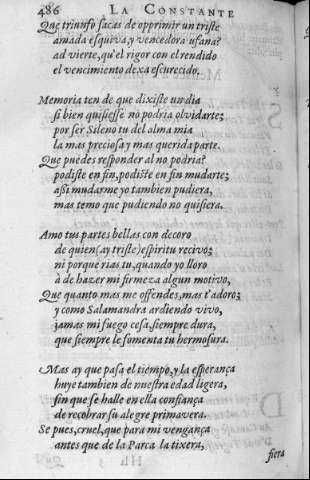 486 LA CONSTANTE
Que triunfo sacas de opprimir un triste
amada esquiva, y vencedora ufana?
ad vierte, qu'el rigor con el rendido
el vencimiento dexa escurecido.
Memoria ten de que dixiste un dia
si bien quisiesse no podria olvidarte;
por ser Sileno tu del alma mia
la mas preciosa y mas querida parte.
Que puedes responder al no podria?
podiste en fin, podiste en fin mudarte;
assi mudarme yo tambien pudiera,
mas temo que pudiendo no quisiera.
Amo tus partes bellas con decoro
de quien (ay triste) espiritu recivo;
ni porque rias tu, quando yo lloro
à de hazer mi firmeza algun motivo,
Que quanto mas me offendes, mas t'adoro;
y como Salamandra ardiendo vivo,
jamas mi fuego cesa, siempre dura,
que siempre le fomenta tu hermosura.
Mas ay que pasa el tiempo, y la esperança
huye tambien de nuestra edad ligera,
sin que se halle en ella confiança
de recobrar su alegre primavera.
Se pues, cruel, que para mi vengança
antes que de la Parca la tixera,
fiera
Hh